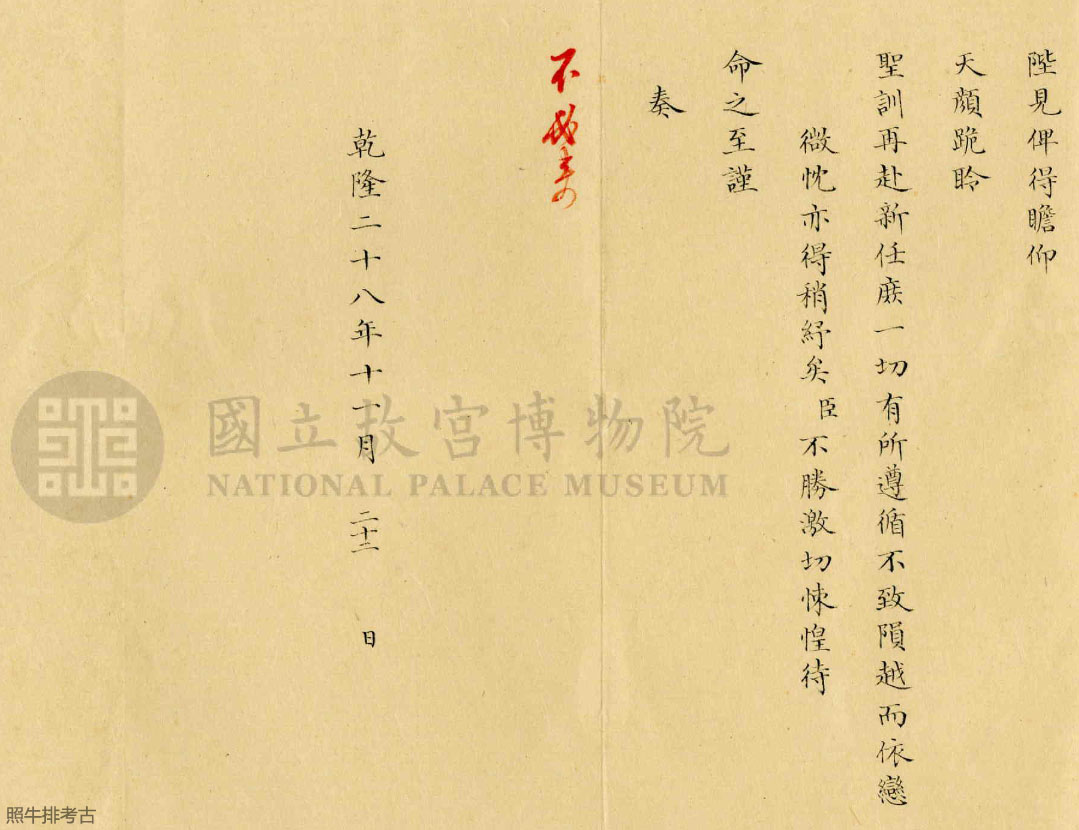 陛見俾得瞻仰
天顏跪聆
聖訓再赴新任庶一切有所遵循不致隕越而依戀
微忱亦得稍紓矣臣不勝激切悚惶待
命之至謹
奏
不必来
乾隆二十八年十一月二十二日
國立故宮博物院
NATIONAL PALACE MUSEUM
照牛排考古